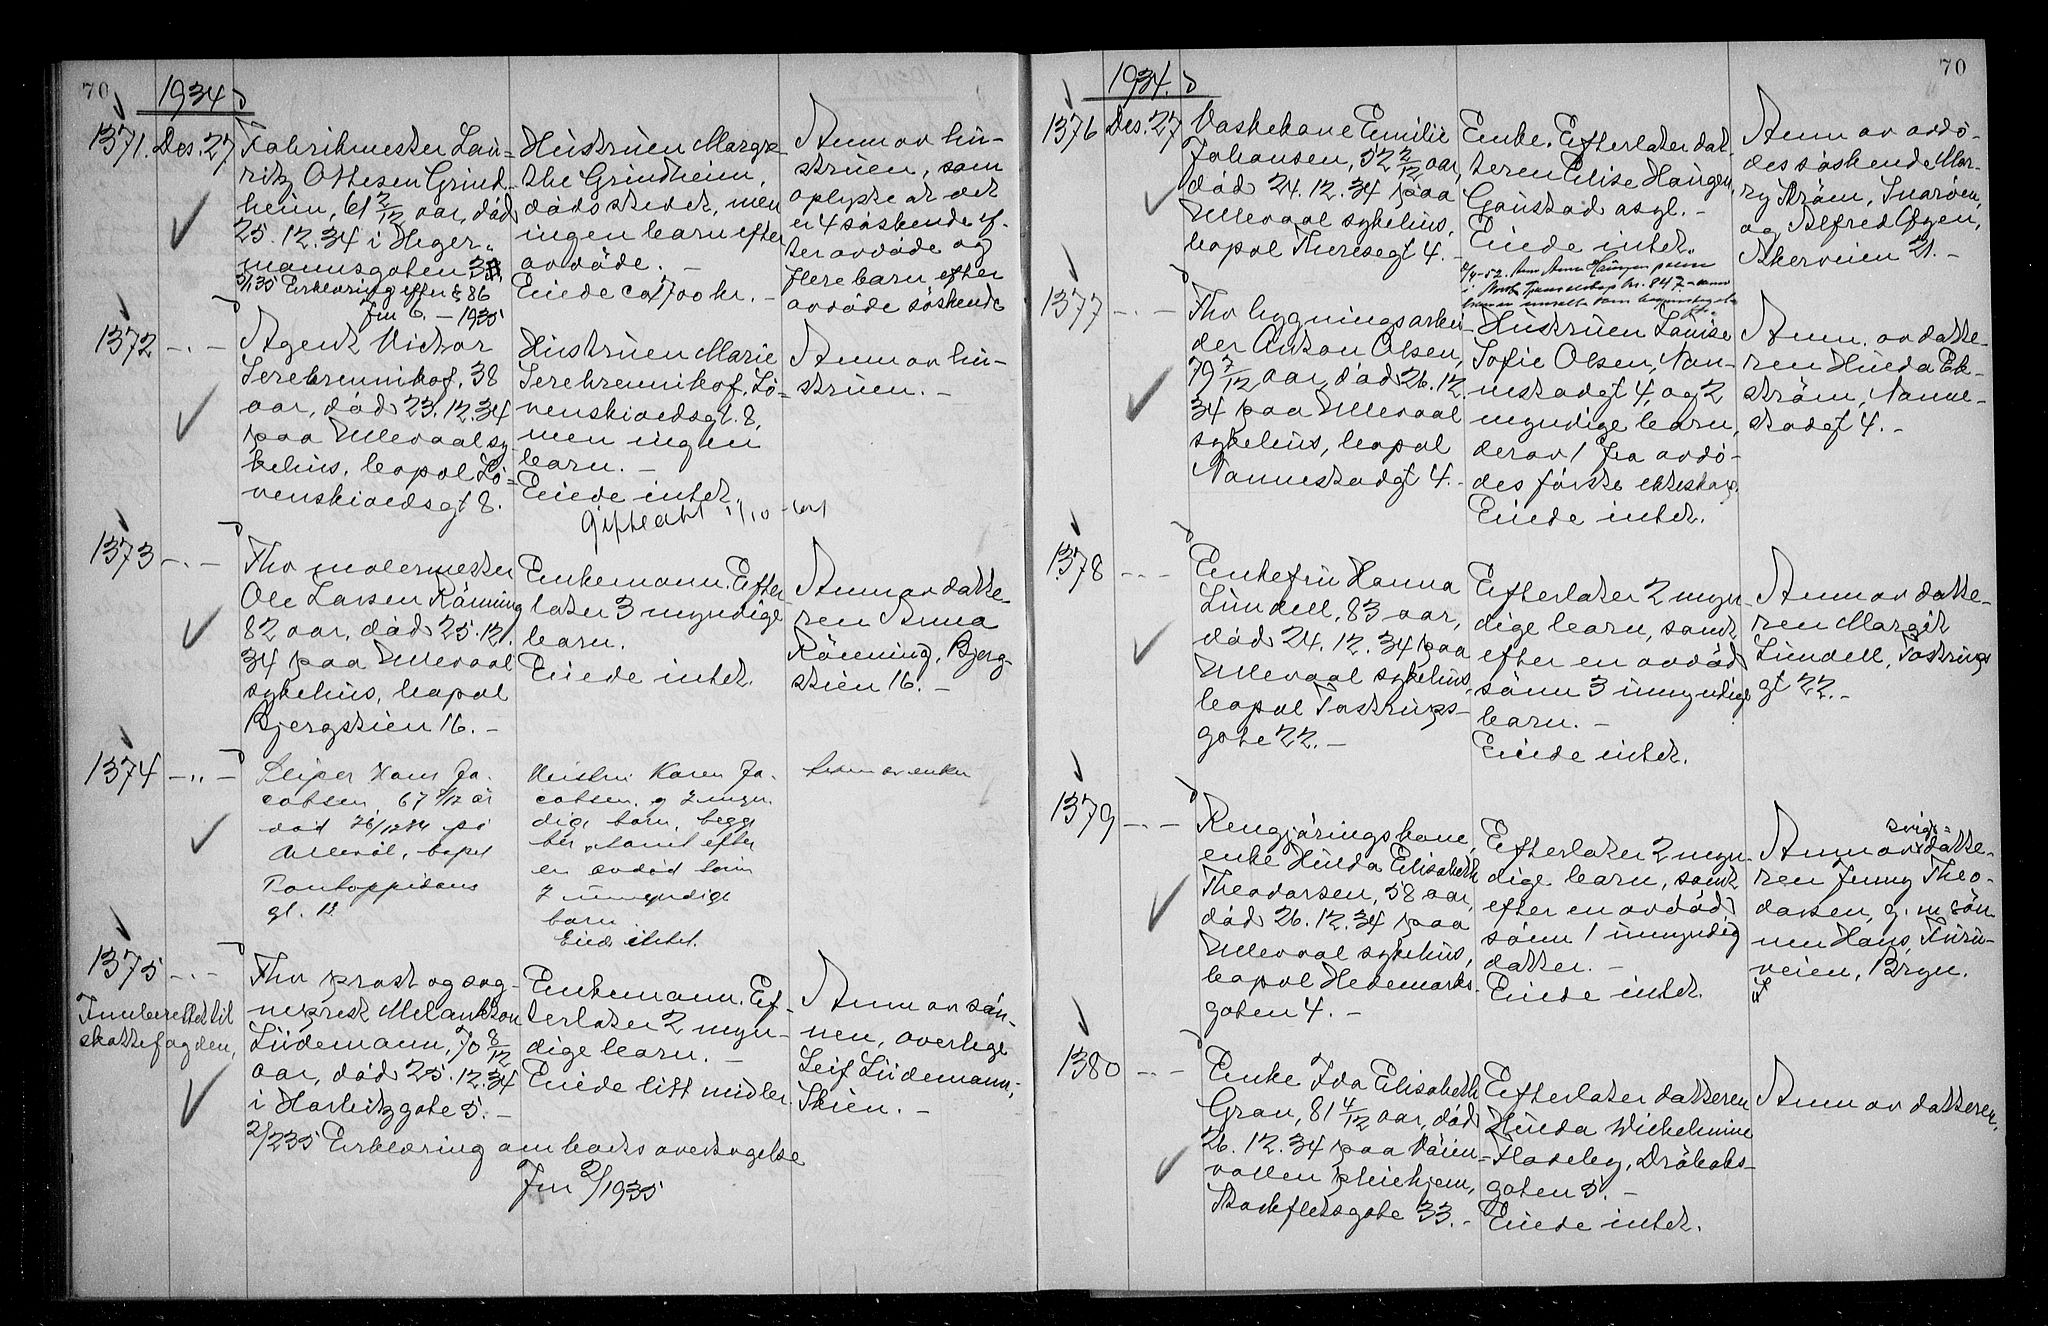 70
1934
1371. Des. 27
Fabrikmester Lau-
ritz Ottesen Grind-
heim, 61 2/12 aar, død
25.12.34 i Heger-
mannsgaten 3
3/1 35 Erklæring efter § 86
Jnl 6. - 1935
Hustruen Margre-
the Grindheim,
dødsstedet, men
ingen barn efter
avdøde. -
Eiede ca 1700 kr. -
Anm av hu-
struen, som
oplyste at det
er 4 søskende ef-
ter avdøde og
flere barn efter
avdøde søskende
1372 - " -
Agent Victor
Serebrennikof, 38
aar, død 23.12.34
paa Ullevaal sy-
kehus, bopel Lø-
venskioldsgt 8.
Hustruen Marie
Serebrennikof, Lø-
venskioldsgt. 8,
men ingen
barn. -
Eiede intet.
Gifteatt
Anm av hu-
struen. -
1373 - " -
Fhv malermester
Ole Larsen Rønning
82 aar, død 25.12.
34 paa Ullevaal
sykehus, bopel
Bjergstien 16. -
Enkemann. Efter-
later 3 myndige
barn.
Eiede intet.
Anm av datte-
ren Anna
Rønning, Bjerg-
stien 16. -
1374 - " -
Sliper Hans Ja-
cobsen, 67 /12 år
død 26/12 34 på
Ullevål, bopel
Pontoppidans
gt. 12
Hustru Karen Ja-
cobsen og 2 myn-
dige barn, begge
her, samt efter
en avdød sønn
2 umyndige
barn
Eiede intet.
Anm av enken
1375 - " -
Innberettet til
skattefogden,
Fhv prost og sog-
neprest Melankton
Lüdemann, 70 8/12
aar, død 25.12.34
i Harbitzgate 5. -
2/2 35 Erklæring om boets overtagelse
Jnl 2/1935
Enkemann. Ef-
terlater 2 myn-
dige barn. -
Eiede litt midler.
Anm av søn-
nen, overlege
Leif Lüdemann,
Skien. -
70
1934.
1376 Des. 27
Vaskekone Emilie
Johansen, 52 2/12 aar,
død 24.12.34 paa
Ullevaal sykehus,
bopel Theresegt 4. -
Enke. Efterlater dat-
teren Elise Haugen,
Gaustad asyl. -
Eiede intet.
Anm av avdø-
des søskende Mar-
ry Strøm, Snarøen,
og Alfred Olsen,
Akerveien 21. -
1377 - " -
Fhv bygningsarbei-
der Anton Olsen,
79 7/12 aar, død 26.12.
34 paa Ullevaal
sykehus, bopel
Nannestadgt 4. -
Hustruen Louise
Sofie Olsen, Nan-
nestadgt 4, og 2
myndige barn,
derav 1 fra avdø-
des første ekteskap.
Eiede intet.
Anm. av datte-
ren Hulda Ek-
strøm, Nanne-
stadgt 4. -
1378 - " -
Enkefru Hanna
Lundell, 83 aar,
død 24.12.34 paa
Ullevaal sykehus,
bopel Tostrups-
gate 22. -
Efterlater 2 myn-
dige barn, samt
efter en avdød
sønn 3 umyndige
barn. -
Eiede intet.
Anm av datte-
ren Margit
Lundell, Tostrups
gt 22. -
1379 - " -
Rengjøringskone,
enke Hulda Elisabeth
Theodorsen, 58 aar,
død 26.12.34 paa
Ullevaal sykehus,
bopel Hedemarks-
gaten 4. -
Efterlater 2 myn-
dige barn, samt
efter en avdød
sønn 1 umyndig
datter. -
Eiede intet.
Anm av sviger-
datte-
ren Jenny Theo-
dorsen, g. m. søn-
nen Hans, Furu-
veien, Bryn.
1380 - " -
Enke Ida Elisabeth
Gran, 81 4/12 aar, død
26.12.34 paa Vøien-
vollen pleiehjem,
Stockfletsgate 33. -
Efterlater datteren
Hulda Wilhelmine
Haseby, Drøbaks-
gaten 5. -
Eiede intet.
Anm av datteren.